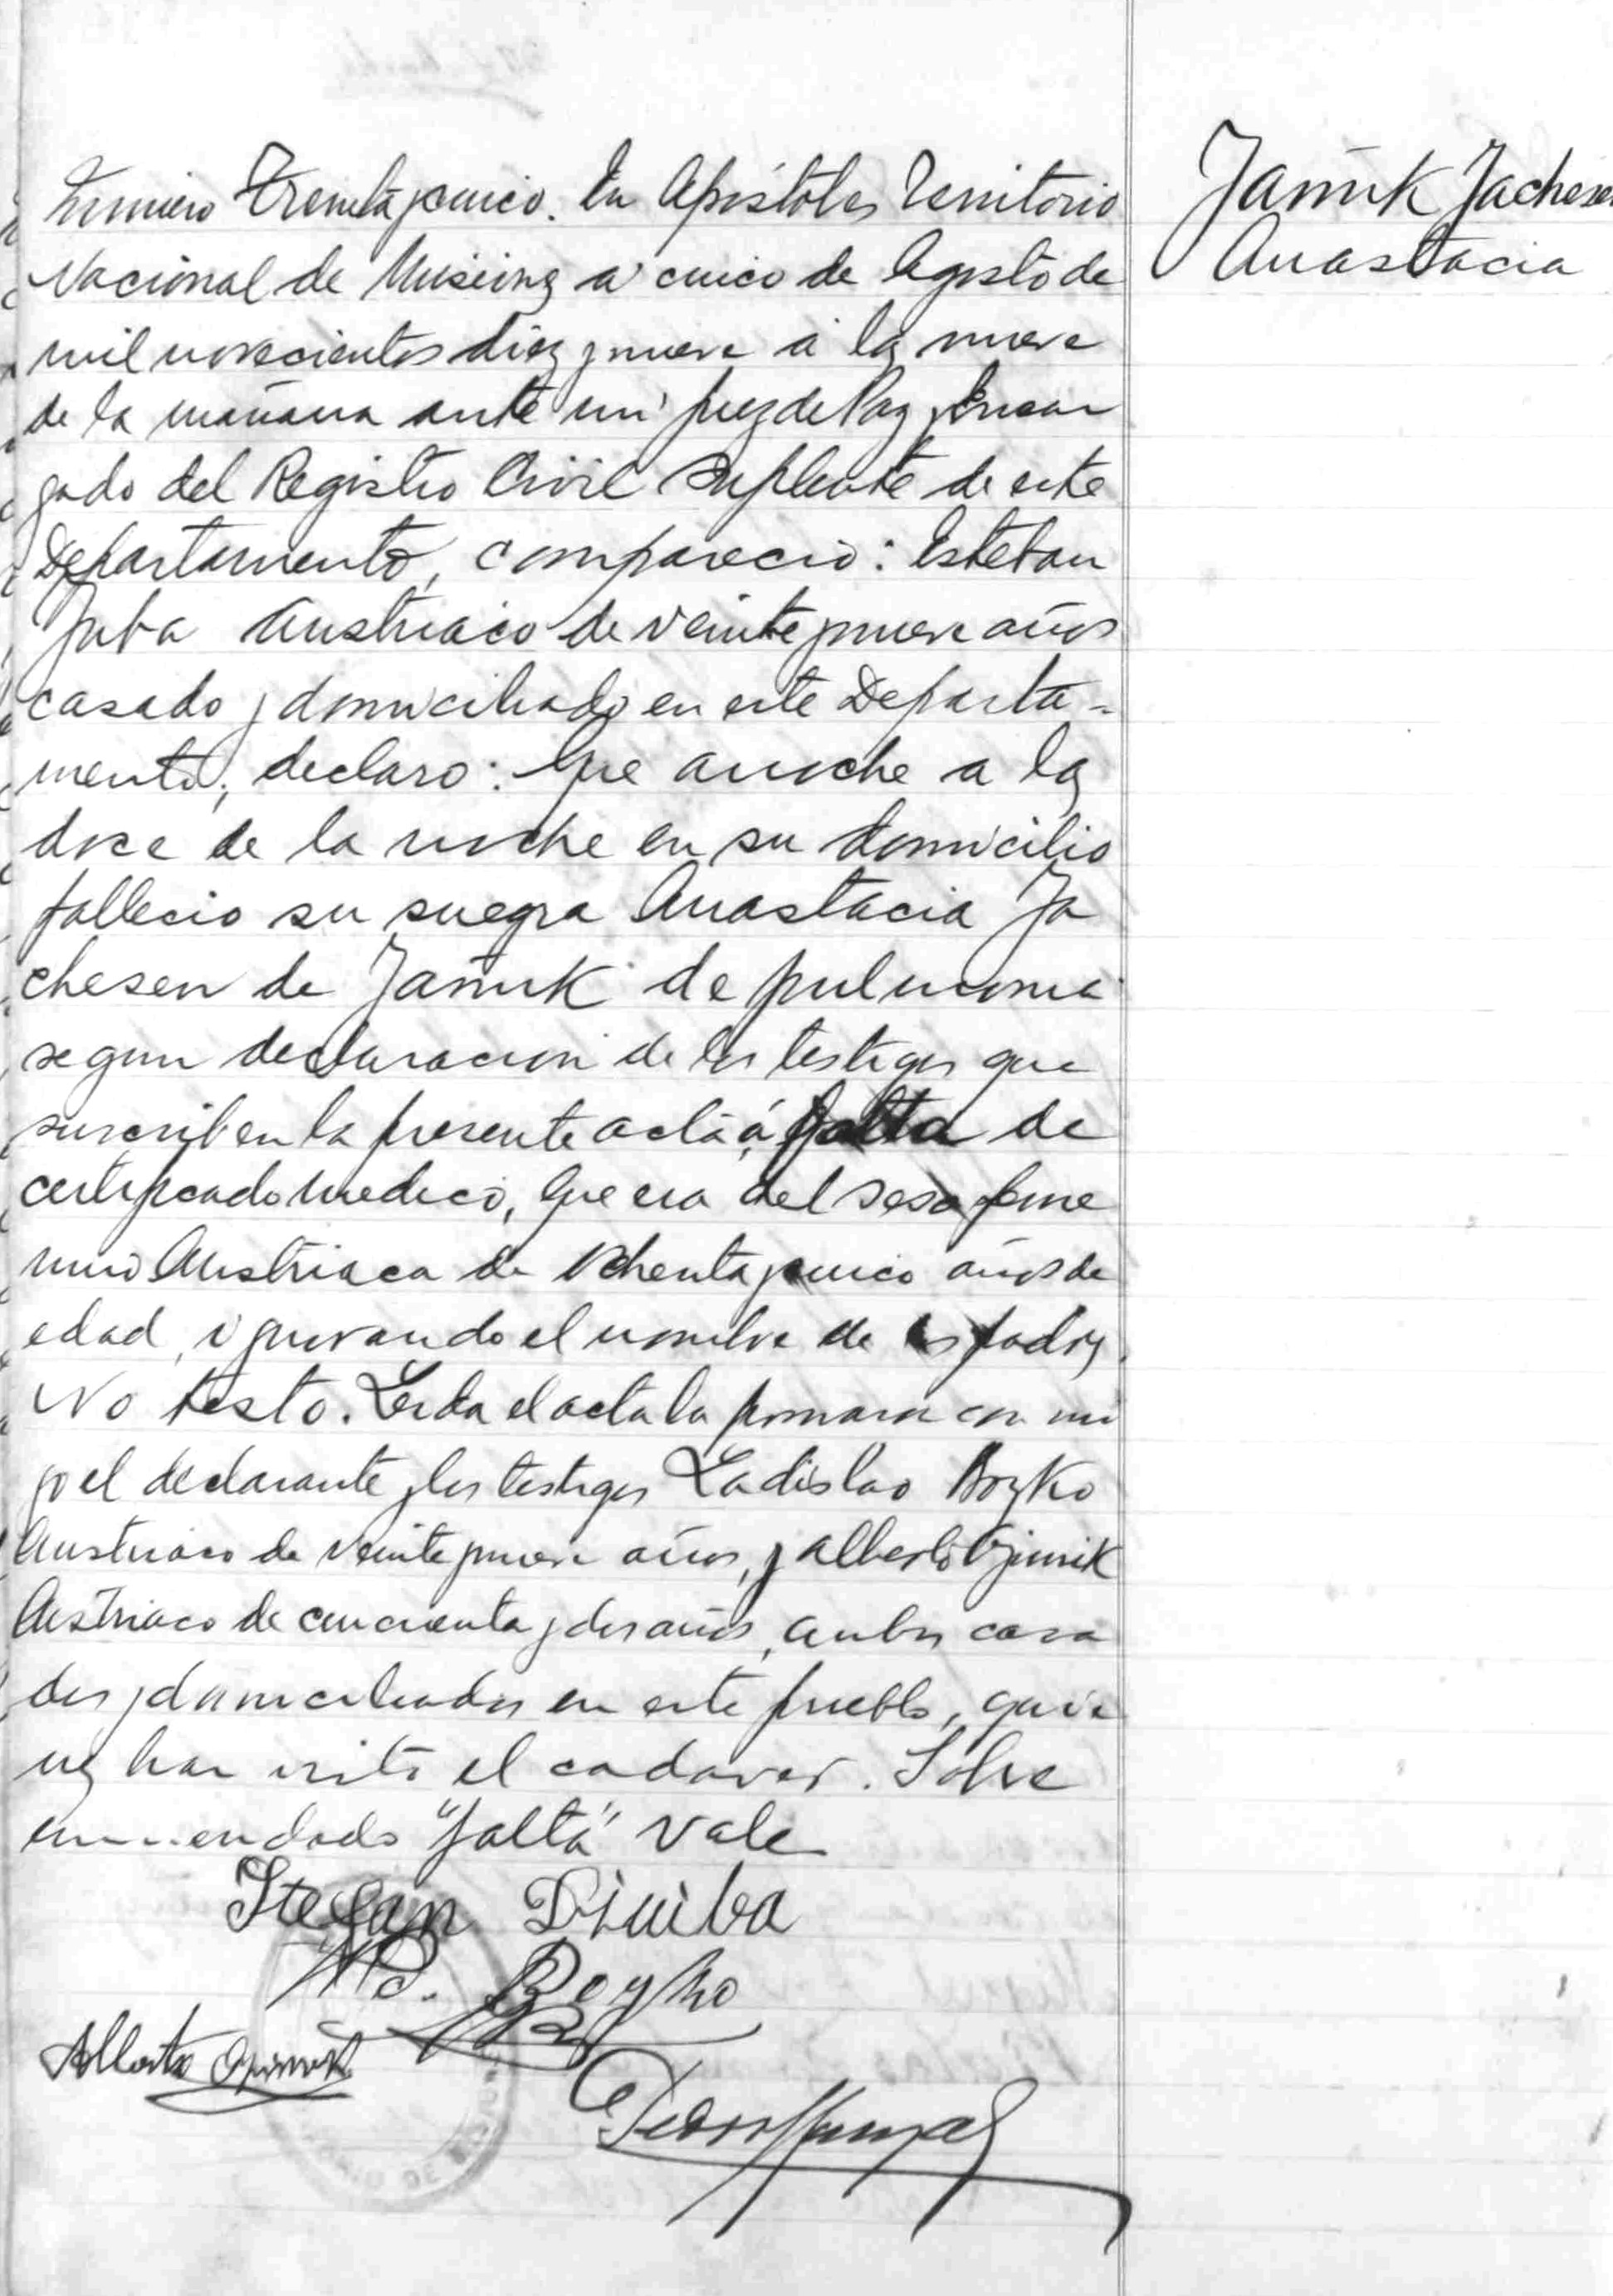 Jañuk Jachesen
Anastacia
Número Treinta y cinco. En Apóstoles Territorio
Nacional de Misiones a cinco de Agosto de
mil novecientos diez y nueve á las nueve
de la mañana ante mi Juez de Paz y Encar
gado del Registro Civil Suplente de este
Departamento, compareció: Esteban
Juba Austriaco de veinte y nueve años
casado y domiciliado en este Departa-
mento, declaro: Que anoche a las
doce de la noche en su domicilio
fallecio su suegra Anastacia Ja
chesen de Jañuk de pulmonia
segun declaracion de los testigos que
suscriben la presente acta á falta de
certificado medico, Que era del sexo feme
nino Austriaca de ochenta y cinco años de
edad, ignorando el nombre de los padres.
No testo. Leida el acta la firmaron con mi
go el declarante y los testigos Ladislao Boyko
Austriaco de veinte y nueve años, y Alberto
Austriaco de cincuenta y dos años, ambos casa
dos y domiciliados en este pueblo, quie
nes han visto el cadaver. Sobre
enmendado "falta" Vale
Stefan
Boyko
Alberto